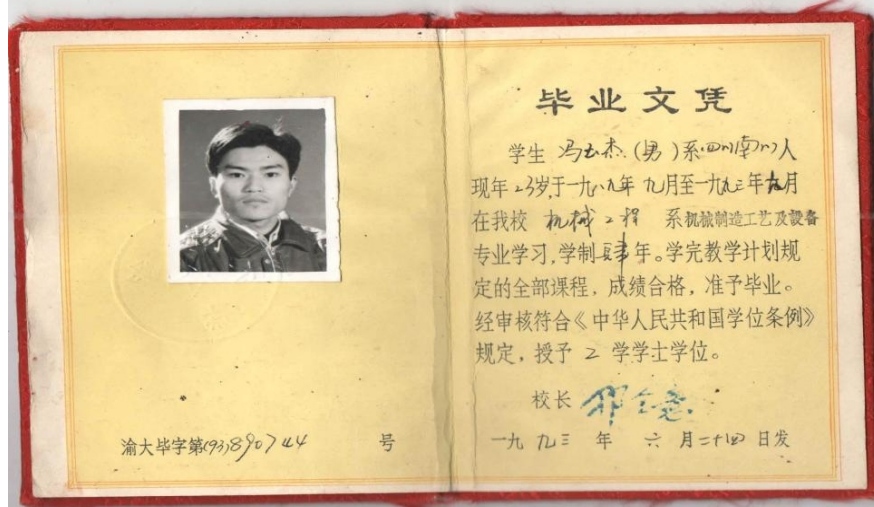 毕业文凭
学生 冯玉杰 (男)系四川南川人
现年23岁,于一九八九年九月至一九九三年九月
在我校 机械工程 系机械制造工艺及设备
专业学习,学制肆年。学完教学计划规
定的全部课程,成绩合格,准予毕业。
经审核符合《中华人民共和国学位条例》
规定,授予工学学士学位。
校长
一九九三年六月二十四日发
渝大毕字第(93)890744号